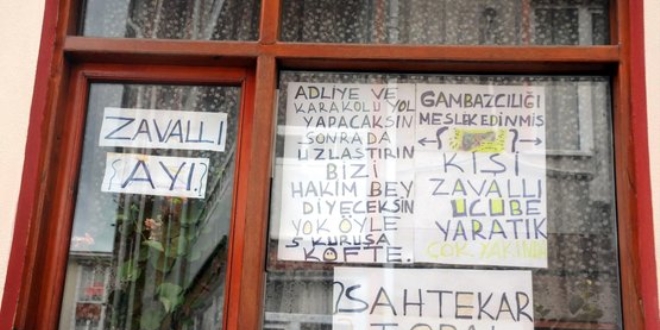 ZAVALLI
{AYI.}
ADLİYE VE
KARAKOLU YOL
YAPACAKSIN
SONRADA
UZLAŞTIRIN
BİZİ
HAKİM BEY
DİYECEKSİN
YOK ÖYLE
5 KURUŞA
KÖFTE.
GAMBAZCILIĞI
MESLEK EDİNMİŞ
KİŞİ
ZAVALLI
UCUBE
YARATIK
ÇOK YAKINDA
SAHTEKAR
TOPAL